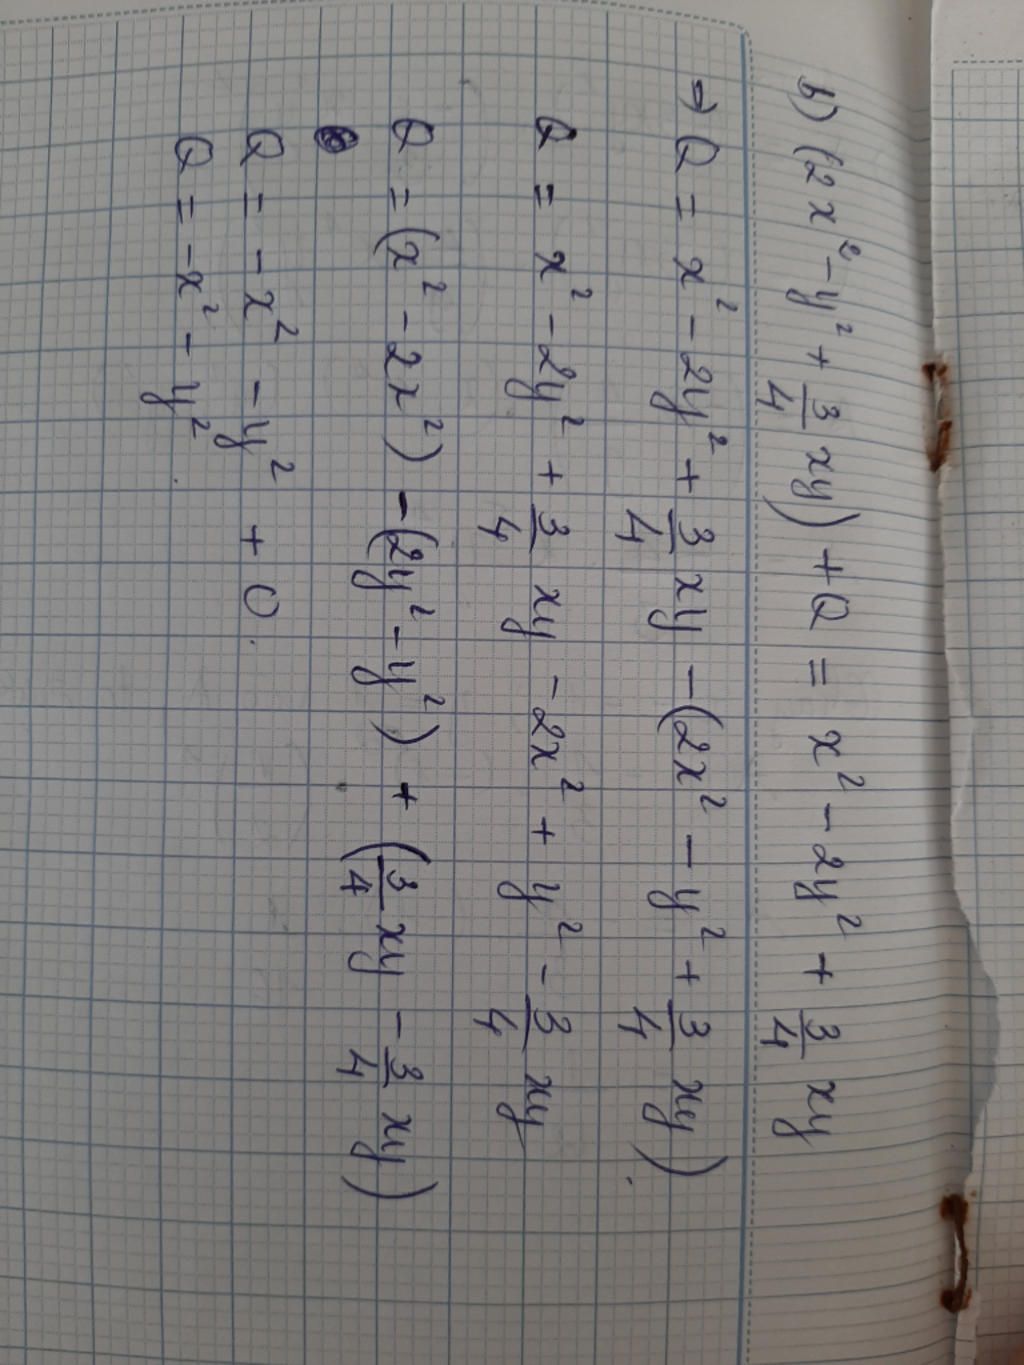 b) (2x² - y² + 3/4 xy) + Q = x² - 2y² + 3/4 xy
⇒ Q = x² - 2y² + 3/4 xy - (2x² - y² + 3/4 xy)
Q = x² - 2y² + 3/4 xy - 2x² + y² - 3/4 xy
Q = (x² - 2x²) - (2y² - y²) + (3/4 xy - 3/4 xy)
Q = - x² - y² + 0.
Q = -x² - y².